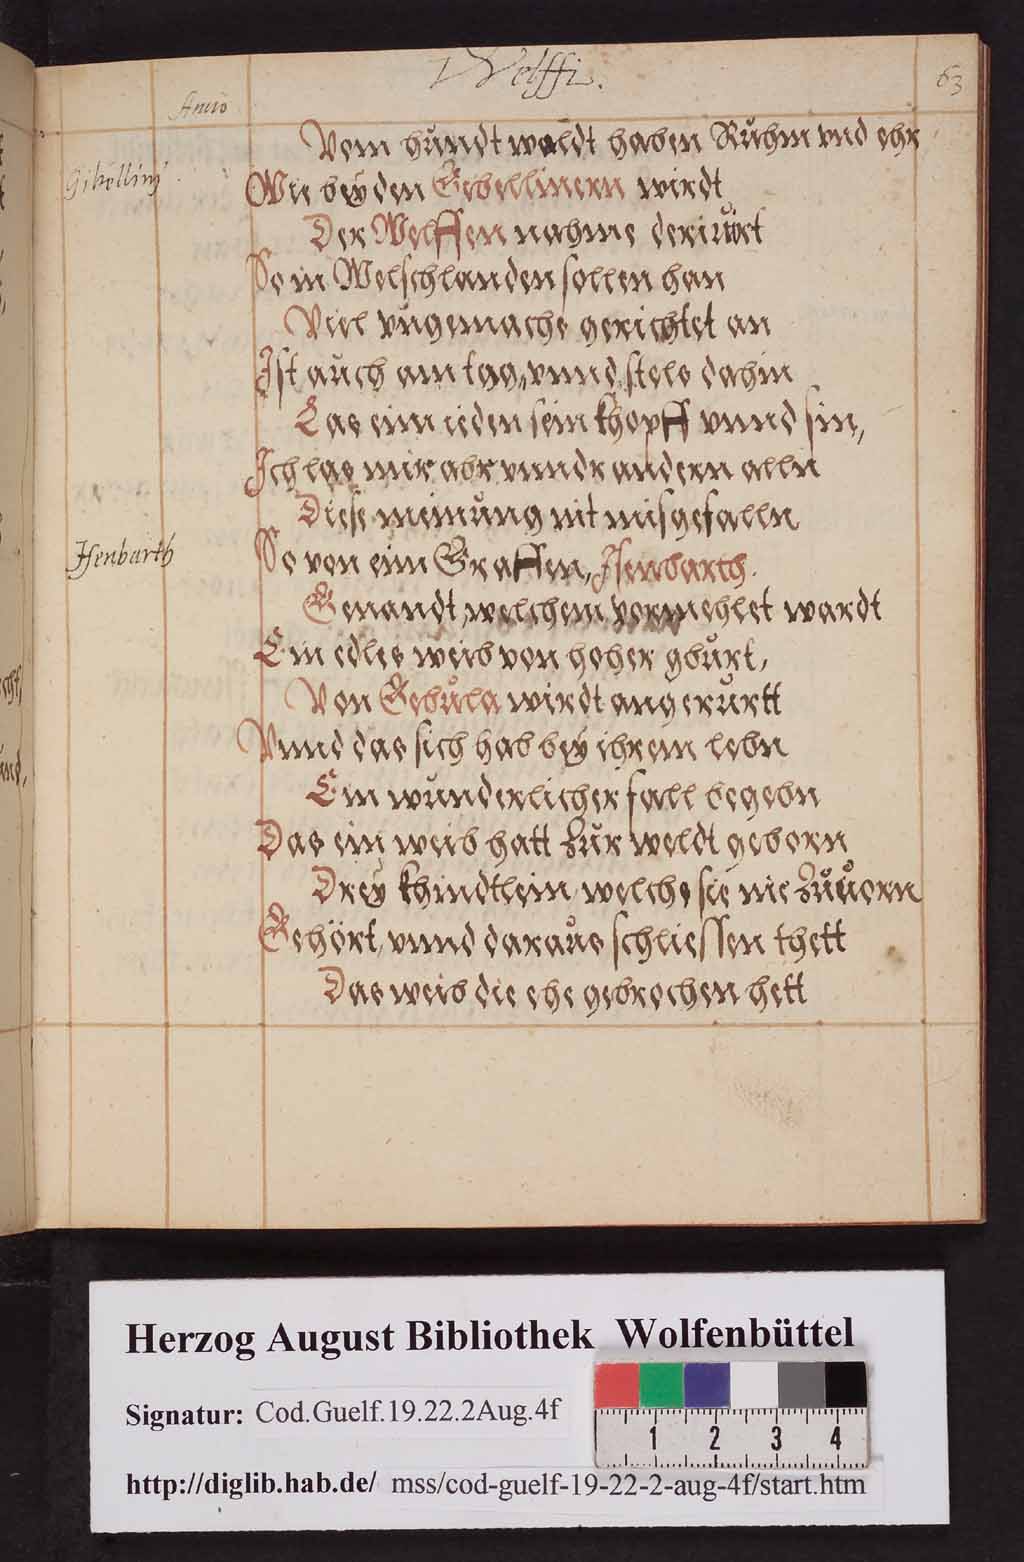 Welffi.
63
Anno
Vom hundt waldt haben Ruhm vnd ehr
Gibellini
Wie bey den Gebellinern wirdt
Der Welffen nahme deriuirt
So in Welschlanden sollen han
Viel vngemache gerichtet an
Ist auch am tag, vnnd stels dahin
Las einn ieden sein khopff vnnd sin,
Ich las mir abr vnndr andern alln
Diese meinung nit misgefalln
Isenbarth
So von einn Graffen, Isenbarth.
Genandt, welchem vormehlet wardt
Ein edles weib von hoher gburt,
Von Gebula wirdt angerurtt
Vnnd das sich hab bey ihrem lebn
Ein wunderlicher fall begebn
Das ein weib hatt zur weldt geborn
Drey khindtlein welchs sie nie zuuorn
Gehört, vnnd daraus schliessen thett
Das weib die ehe gebrochen hett
Herzog August Bibliothek Wolfenbüttel
Signatur: Cod.Guelf.19.22.2Aug.4f
1 2 3 4
http://diglib.hab.de/ mss/cod-guelf-19-22-2-aug-4f/start.htm